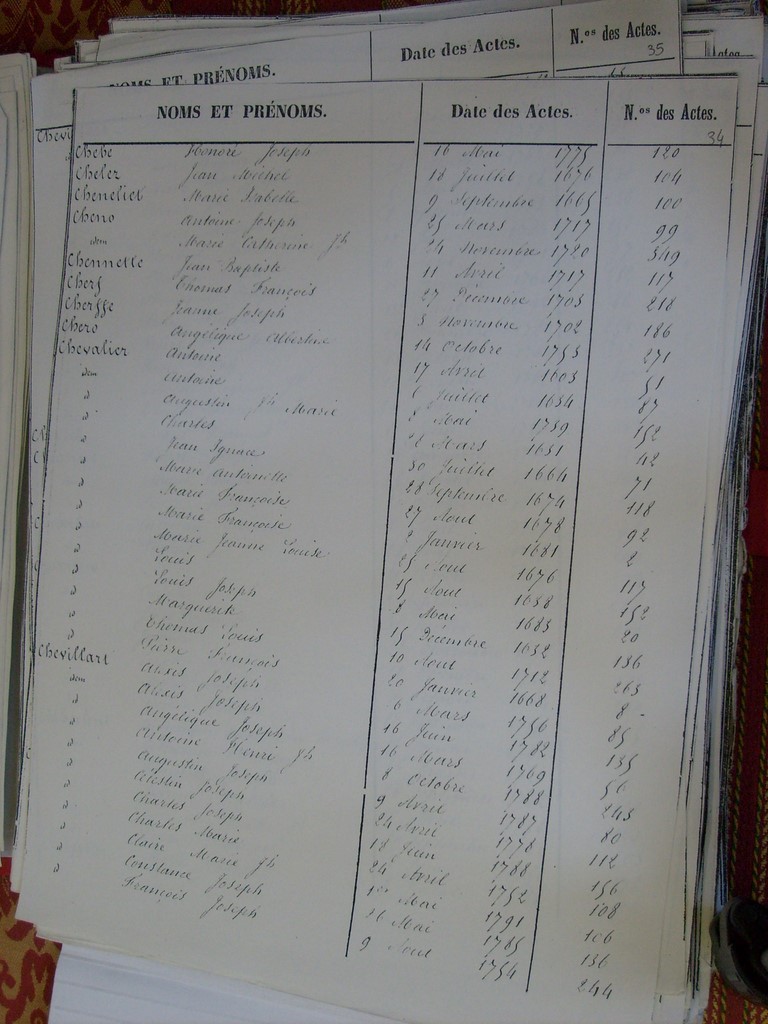 Date des Actes.
N.os des Actes.
35
NOMS ET PRÉNOMS.
NOMS ET PRÉNOMS. Date des Actes. N.os des Actes.
34
Chebe Honoré Joseph 16 Mai 1775 120
Chelez Jean Michel 18 Juillet 1676 104
Cheneliet Marie Isabelle 9 Septembre 1665 100
Cheno Antoine Joseph 25 Mars 1717 99
idem Marie Catherine Jh 24 Novembre 1720 349
Chennelle Jean Baptiste 11 Avril 1717 117
Chers Thomas François 27 Décembre 1703 218
Chersse Jeanne Joseph 3 Novembre 1702 186
Chero Angélique Albertine 14 Octobre 1753 271
Chevalier Antoine 17 Avril 1603 51
idem Antoine Juillet 1634 87
d Augustin Jh Marie Mai 1739 152
d Charles Mars 1651 42
d Jean Ignace 30 Juillet 1664 71
d Marie Antoinette 28 Septembre 1674 118
d Marie Françoise 27 Aout 1678 92
d Marie Françoise 2 Janvier 1681 2
d Marie Jeanne Louise 25 Aout 1676 117
d Louis 15 Aout 1638 152
d Louis Joseph 8 Mai 1683 20
d Marguerite 15 Décembre 1632 136
d Thomas Louis 10 Aout 1712 263
Chevillart Pierre François 20 Janvier 1668 8
idem Alexis Joseph 6 Mars 1756 85
d Alexis Joseph 16 Juin 1782 135
d Angélique Joseph 16 Mars 1769 56
d Antoine Henri Jh 8 Octobre 1788 243
d Augustin Joseph 9 Avril 1787 80
d Célestin Joseph 24 Avril 1778 112
d Charles Joseph 18 Juin 1788 156
d Charles Marie 24 Avril 1752 108
d Claire Marie Jh 1er Mai 1791 106
d Constance Joseph 16 Mai 1785 136
d François Joseph 9 Aout 1754 244